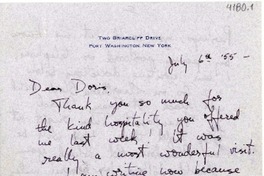 4180.1
TWO BRIARCLIFF DRIVE
PORT WASHINGTON NEW YORK
July 6th '55 -
Dear Doris,
Thank you so much for
the kind hospitality you offered
me last week, it was
really a most wonderful visit.
I am writing now because